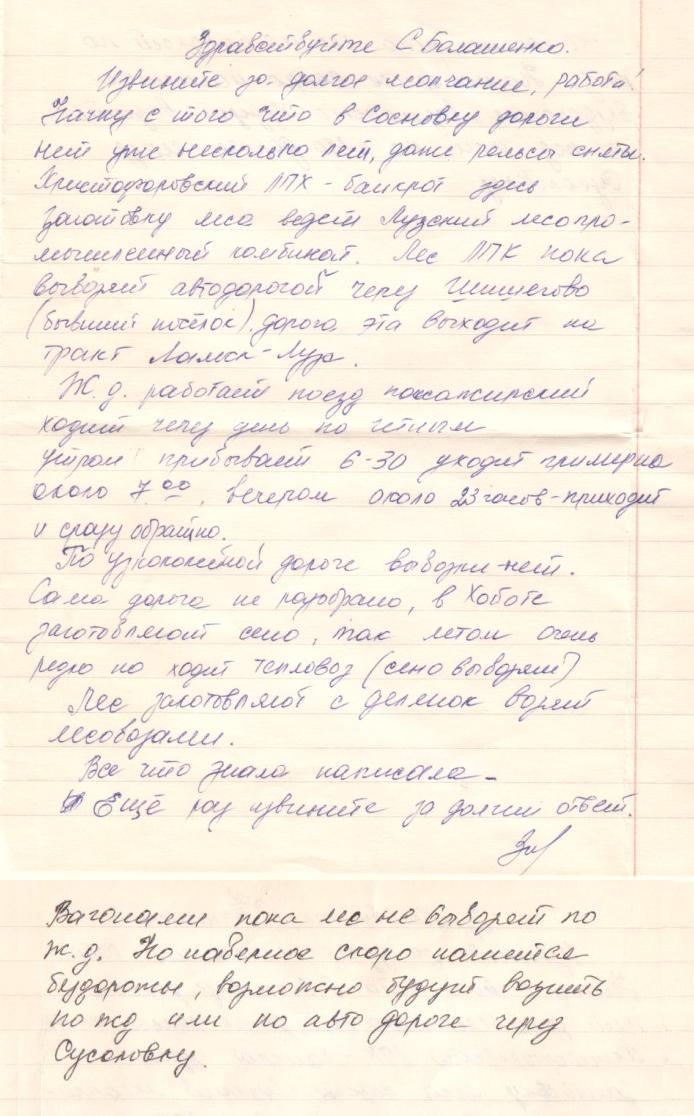 Здравствуйте С. Балашенко.
Извините за долгое молчание, работа!
Начну с того что в Сосновку дороги
нет уже несколько лет, даже рельсы сняты.
Христофоровский ЛПХ - банкрот здесь
заготовку леса ведет Лузский лесопро-
мышленный комбинат. Лес ЛПК пока
вывозят автодорогой через Шишегово
(бывший посёлок), дорога эта выходит на
тракт Лальск-Луза.
Ж.д. работает поезд пассажирский
ходит через день по чётным
утром прибывает 6-30 уходит примерно
около 7.00, вечером около 23 часов-приходит
и сразу обратно.
По узкоколейной дороге вывозки-нет.
Сама дорога не разобрана, в Хоботе
заготовляют сено, так летом очень
редко но ходит тепловоз (сено вывозят)
Лес заготовляют с деленок возят
лесовозами.
Все что знала написала -
Ещё раз извините за долгий ответ.
Вагонами пока лес не вывозят по
ж.д. Но наверное скоро начнется
бездорожье, возможно будут возить
по жд или по авто дороге через
Сусоловку.